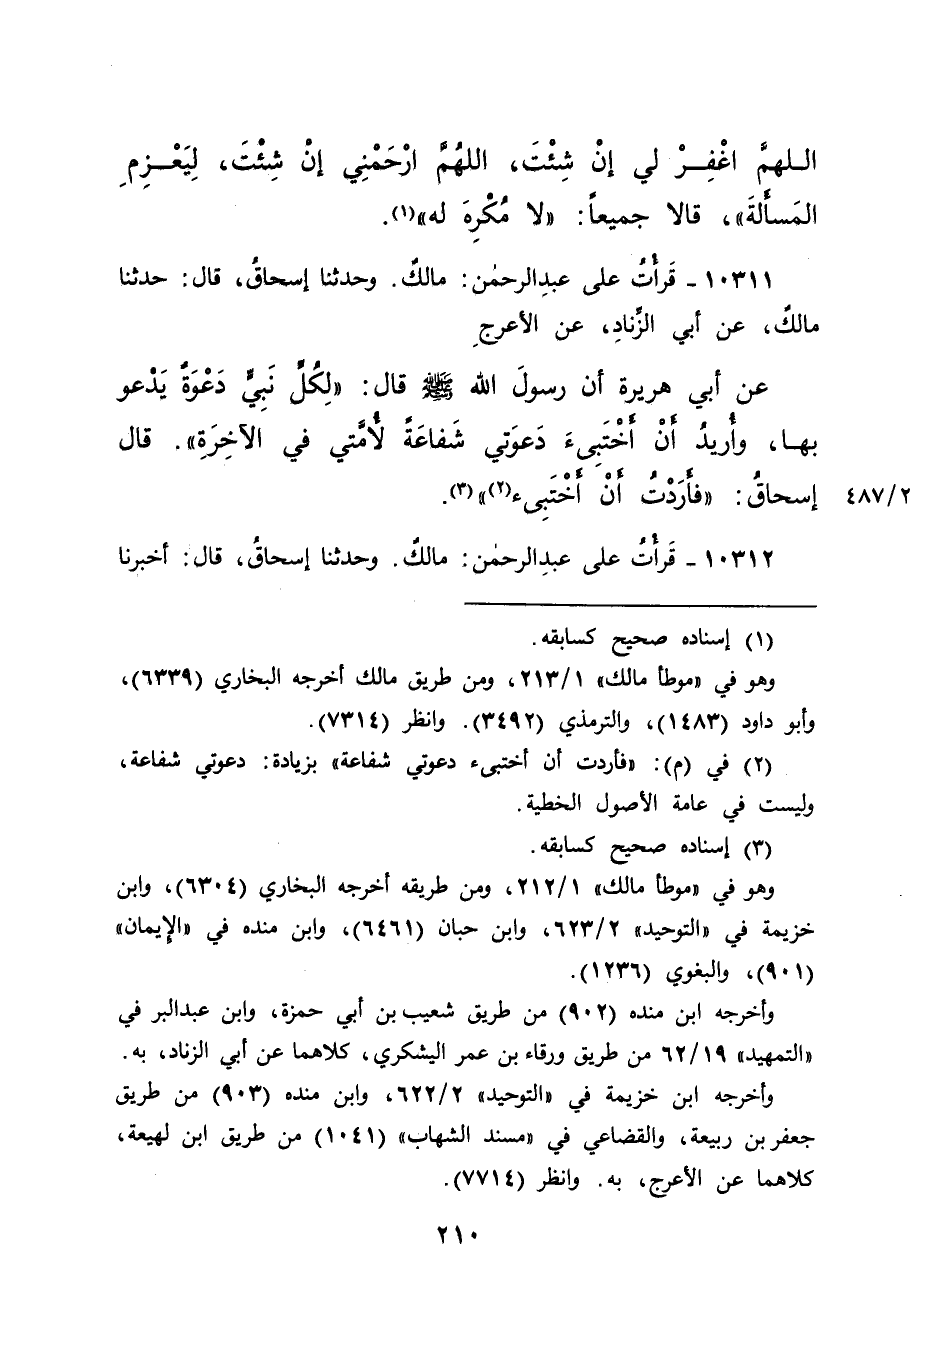 اللهمَّ اغْفِرْ لي إنْ شِئْتَ، اللهُمَّ ارْحَمْنِي إنْ شِئْتَ، لِيَعْزِمِ
المَسأَلةَ»، قالا جميعاً: «لا مُكْرِهَ له»(١).
١٠٣١١ - قَرأْتُ على عبدِالرحمٰن: مالكٌ. وحدثنا إسحاقُ، قال: حدثنا
مالكٌ، عن أبي الزِّنادِ، عن الأعرجِ
عن أبي هريرة أن رسولَ الله ﷺ قال: «لِكُلِّ نَبِيٍّ دَعْوَةٌ يَدْعو
بها، وأُريدُ أَنْ أَخْتَبِىءَ دَعوَتي شَفاعَةً لأُمَّتي في الآخِرَةِ». قال
إسحاقُ: «فأَرَدْتُ أَنْ أَخْتَبِىء(٢)»(٣).
٤٨٧/٢
١٠٣١٢ - قَرأْتُ على عبدِالرحمٰن: مالكٌ. وحدثنا إسحاقُ، قال: أخبرنا
(١) إسناده صحيح كسابقه.
وهو في «موطأ مالك» ٢١٣/١، ومن طريق مالك أخرجه البخاري (٦٣٣٩)،
وأبو داود (١٤٨٣)، والترمذي (٣٤٩٢). وانظر (٧٣١٤).
(٢) في (م): «فأردت أن أختبىء دعوتي شفاعة» بزيادة: دعوتي شفاعة،
وليست في عامة الأصول الخطية.
(٣) إسناده صحيح كسابقه.
وهو في «موطأ مالك» ٢١٢/١، ومن طريقه أخرجه البخاري (٦٣٠٤)، وابن
خزيمة في «التوحيد» ٦٢٣/٢، وابن حبان (٦٤٦١)، وابن منده في «الإيمان»
(٩٠١)، والبغوي (١٢٣٦).
وأخرجه ابن منده (٩٠٢) من طريق شعيب بن أبي حمزة، وابن عبدالبر في
«التمهيد» ٦٢/١٩ من طريق ورقاء بن عمر اليشكري، كلاهما عن أبي الزناد، به.
وأخرجه ابن خزيمة في «التوحيد» ٦٢٢/٢، وابن منده (٩٠٣) من طريق
جعفر بن ربيعة، والقضاعي في «مسند الشهاب» (١٠٤١) من طريق ابن لهيعة،
كلاهما عن الأعرج، به. وانظر (٧٧١٤).
٢١٠